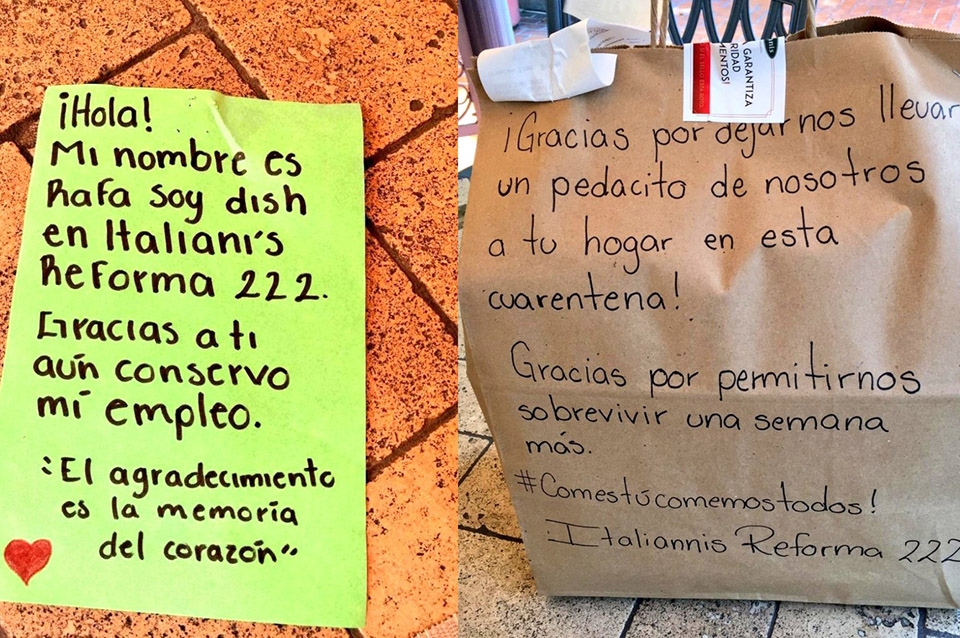 ¡Hola!
Mi nombre es
Rafa Soy dish
en Italiani's
Reforma 222.
Gracias a ti
aún conservo
mi empleo.
"El agradecimiento
es la memoria
del corazón"
GARANTIZA
RIDAD
MENTOS!
¡Gracias por dejarnos llevar
un pedacito de nosotros
a tu hogar en esta
cuarentena!
Gracias por permitirnos
sobrevivir una semana
más.
#Comestúcomemostodos!
Italiannis Reforma 222